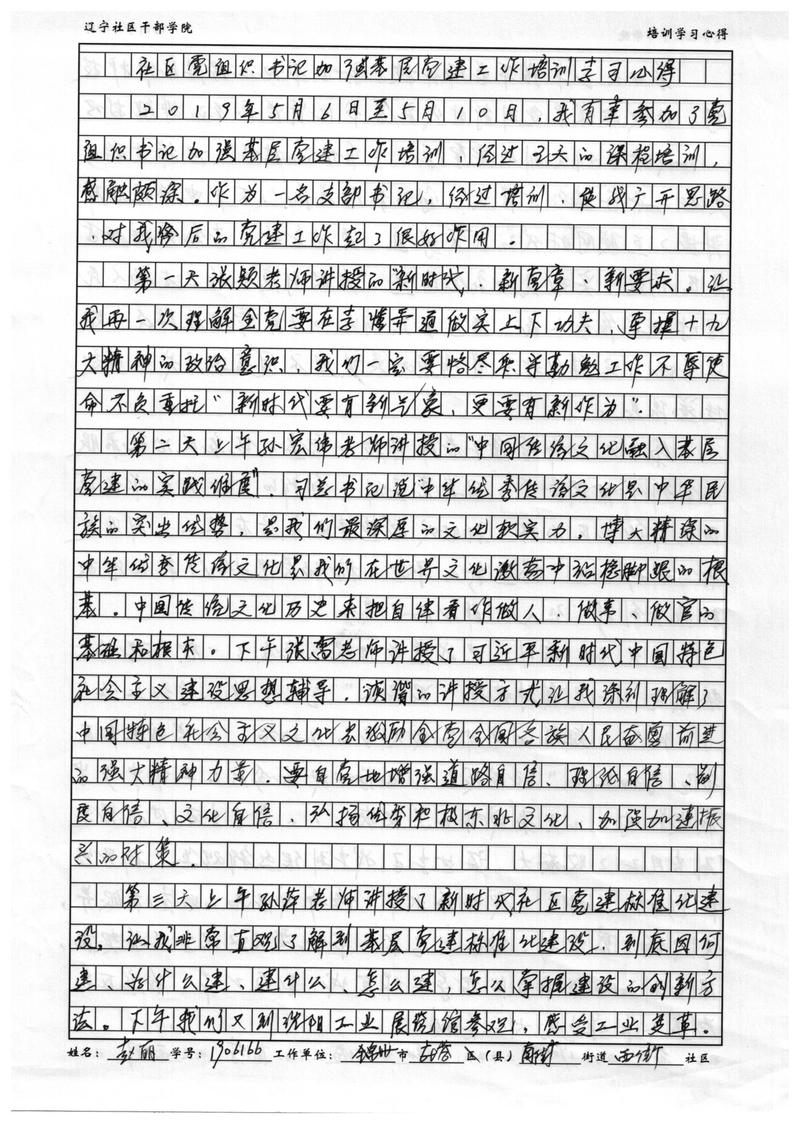 辽宁社区干部学院 培训学习心得
社区党组织书记加强基层党建工作培训学习心得
2019年5月6日至5月10日,我有幸参加了党
组织书记加强基层党建工作培训,经过五天的课程培训,
感触颇深。作为一名支部书记,经过培训,使我广开思路
,对我今后的党建工作起了很好作用。
第一天张颖老师讲授的"新时代、新党章、新要求。让
我再一次理解全党要在学懂弄通做实上下功夫,掌握十九
大精神的政治意识,我们一定要恪尽职守勤勉工作不辱使
命不负重托"新时代要有新气象,更要有新作为"。
第二天上午孙宏伟老师讲授的"中国传统文化融入基层
党建的实践维度",习总书记说"中华优秀传统文化是中华民
族的突出优势,是我们最深厚的文化软实力,博大精深的
中华优秀传统文化是我们在世界文化激荡中站稳脚跟的根
基。中国传统文化历史来把自律看作做人、做事、做官的
基础和根本。下午张雷老师讲授了习近平新时代中国特色
社会主义建设思想辅导,诙谐的讲授方式让我深刻理解了
中国特色社会主义文化是激励全党全国各族人民奋勇前进
的强大精神力量,要自觉地增强道路自信、理论自信、制
度自信、文化自信,弘扬优势积极东北文化,加强加速振
兴的对策。
第三天上午孙萍老师讲授了新时代社区党建标准化建
设。让我非常直观了解到基层党建标准化建设,到底因何
建、为什么建、建什么、怎么建,怎么掌握建设的创新方
法。下午我们又到沈阳工业展览馆参观,感受工业变革。
姓名:赵丽 学号:1906166 工作单位:锦州市古塔区(县)南街街道西街社区